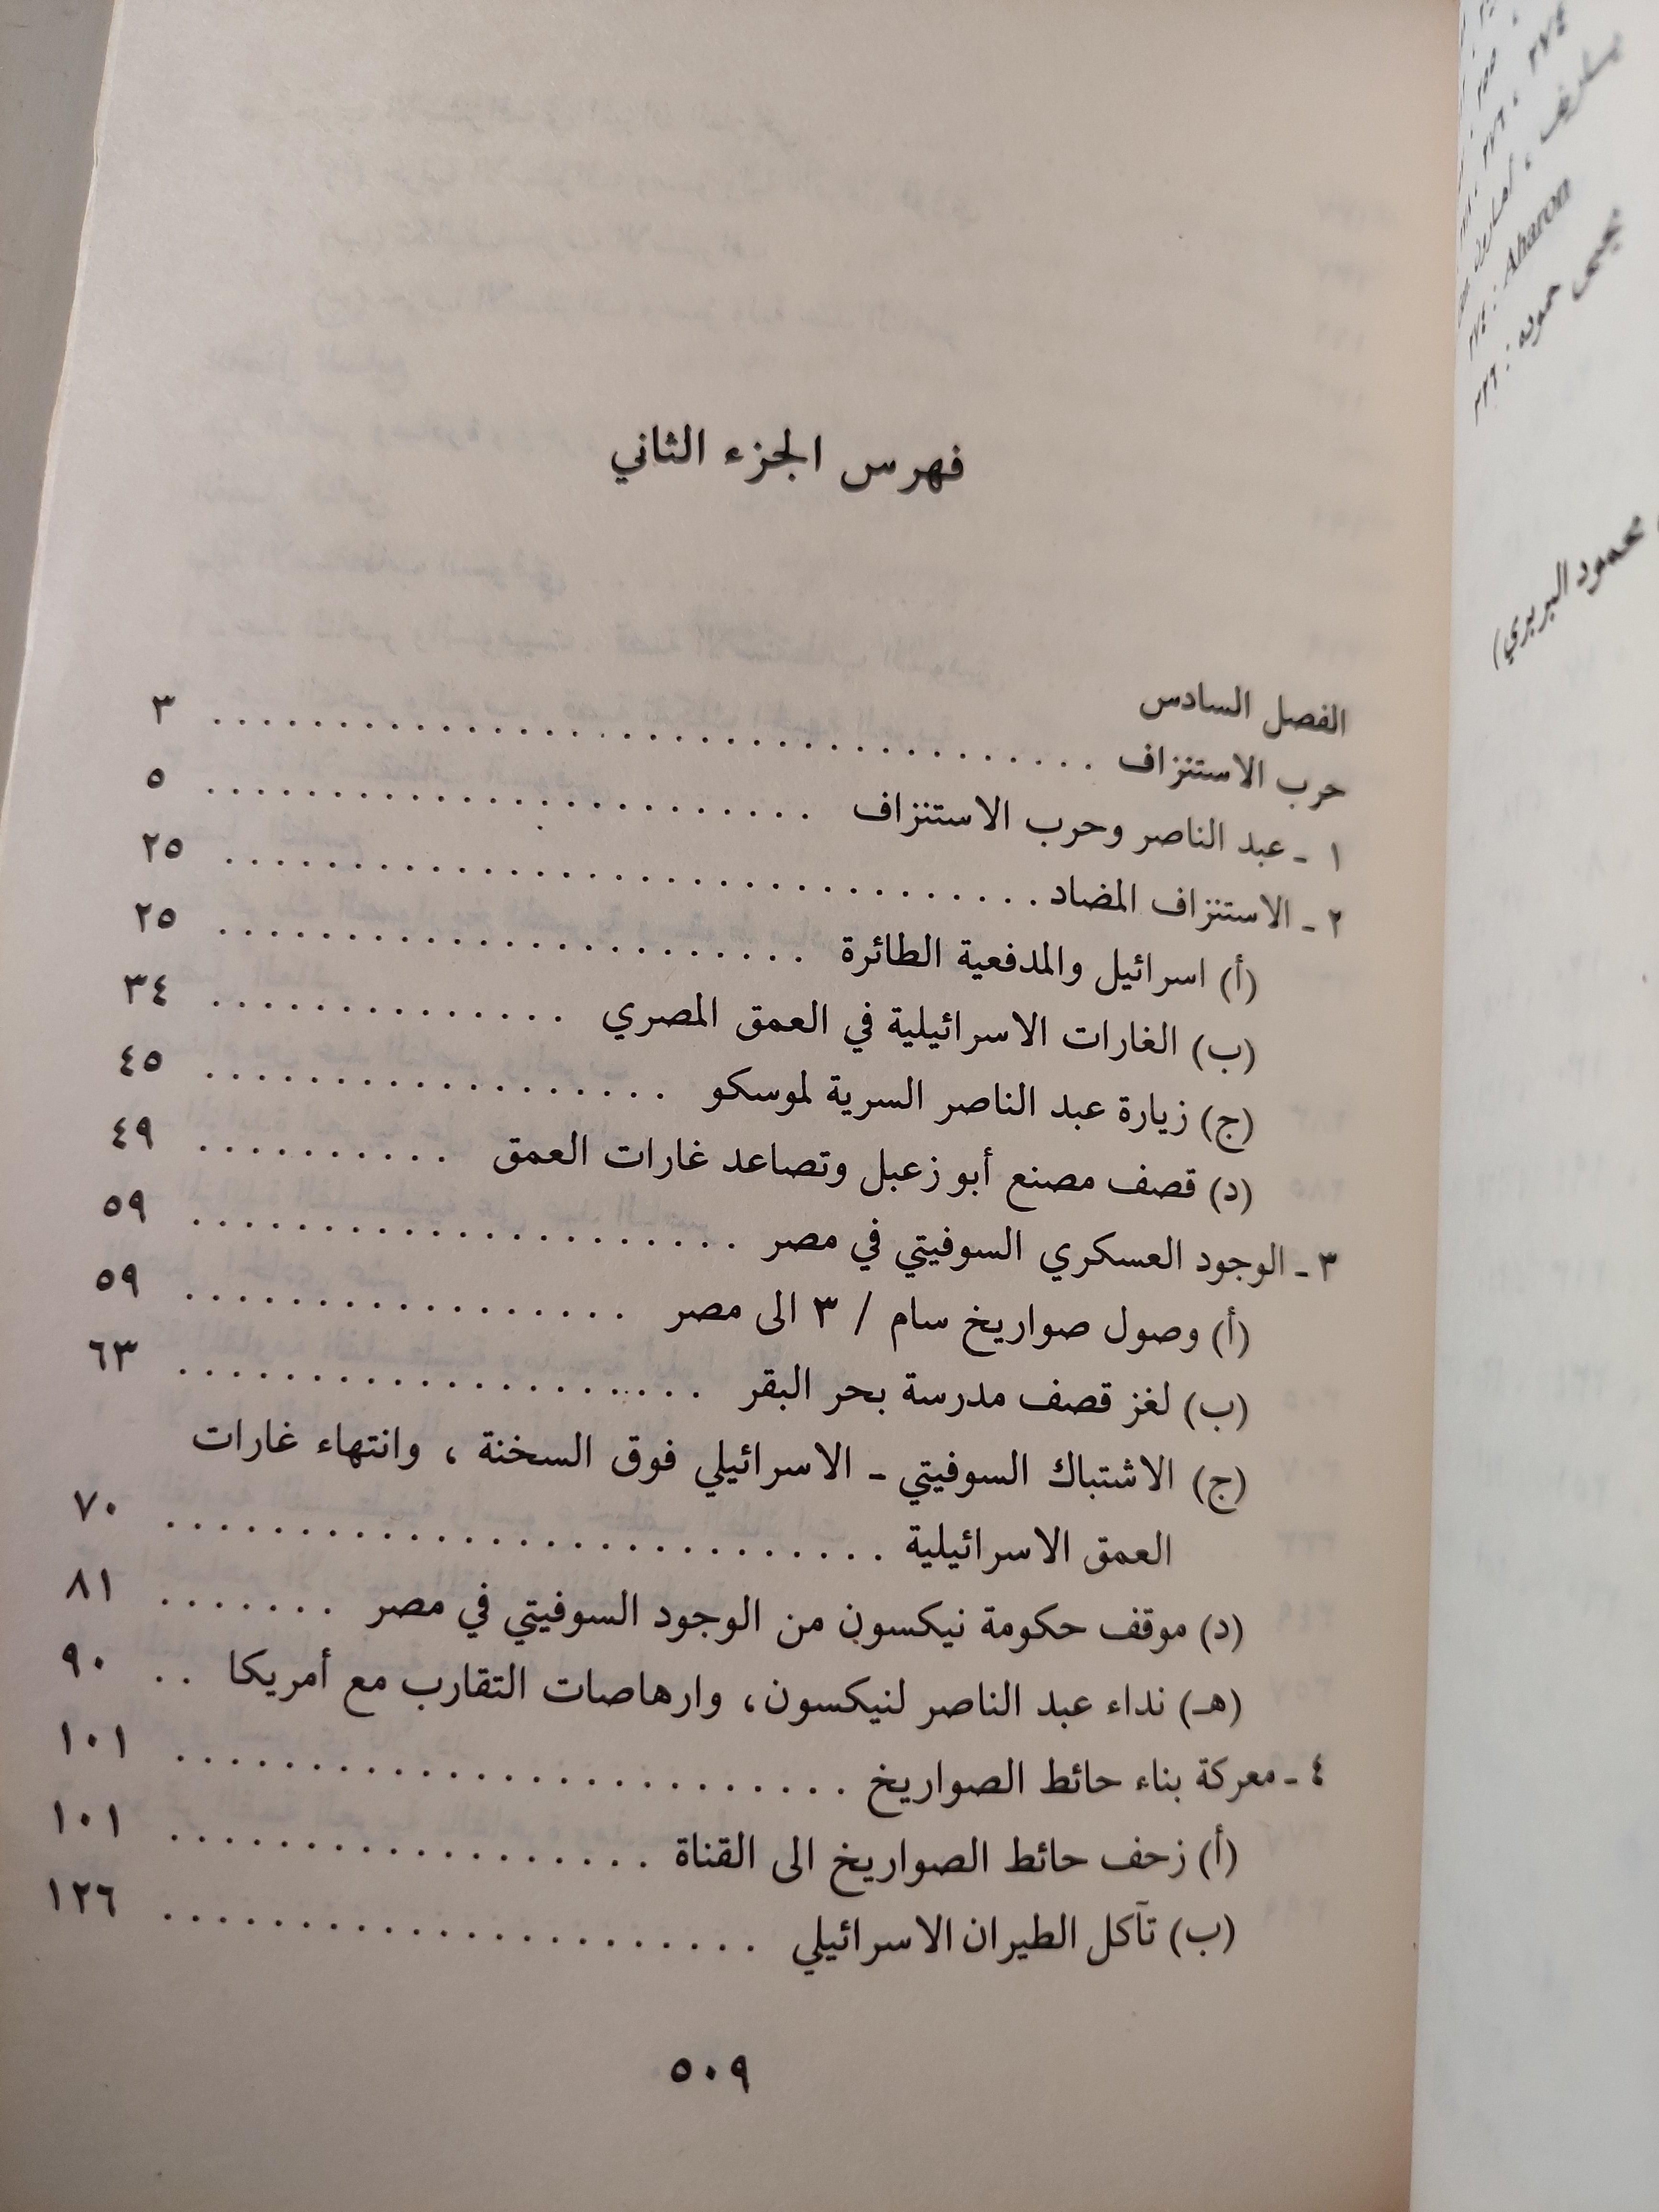 فهرس الجزء الثاني
الفصل السادس
حرب الاستنزاف . . . . . . . . . . . . . . . . . . . . . . . . . . . . . . . . . . . ٣
١ ـ عبد الناصر وحرب الاستنزاف . . . . . . . . . . . . . . . . . . . . . . . . ٥
٢ ـ الاستنزاف المضاد . . . . . . . . . . . . . . . . . . . . . . . . . . . . . . . ٢٥
(أ) اسرائيل والمدفعية الطائرة . . . . . . . . . . . . . . . . . . . . . . . ٢٥
(ب) الغارات الاسرائيلية في العمق المصري . . . . . . . . . . . . . . ٣٤
(ج) زيارة عبد الناصر السرية لموسكو . . . . . . . . . . . . . . . . . . ٤٥
(د) قصف مصنع أبو زعبل وتصاعد غارات العمق . . . . . . . . . . ٤٩
٣ ـ الوجود العسكري السوفيتي في مصر . . . . . . . . . . . . . . . . . . . . . ٥٩
(أ) وصول صواريخ سام / ٣ الى مصر . . . . . . . . . . . . . . . . . ٥٩
(ب) لغز قصف مدرسة بحر البقر . . . . . . . . . . . . . . . . . . . . . ٦٣
(ج) الاشتباك السوفيتي ـ الاسرائيلي فوق السخنة ، وانتهاء غارات
العمق الاسرائيلية . . . . . . . . . . . . . . . . . . . . . . . . . . . ٧٠
(د) موقف حكومة نيكسون من الوجود السوفيتي في مصر . . . . . . . ٨١
(هـ) نداء عبد الناصر لنيكسون، وارهاصات التقارب مع أمريكا . . ٩٠
٤ ـ معركة بناء حائط الصواريخ . . . . . . . . . . . . . . . . . . . . . . . . . ١٠١
(أ) زحف حائط الصواريخ الى القناة . . . . . . . . . . . . . . . . . . ١٠١
(ب) تآكل الطيران الاسرائيلي . . . . . . . . . . . . . . . . . . . . . . ١٢٦
٥٠٩
٢٧٤
٢٥٥
٢٧٦ ،
ياريف ، أهارون
Aharon : ٢٧٤
يحيى حموده : ٢٢٩
محمود البربري)